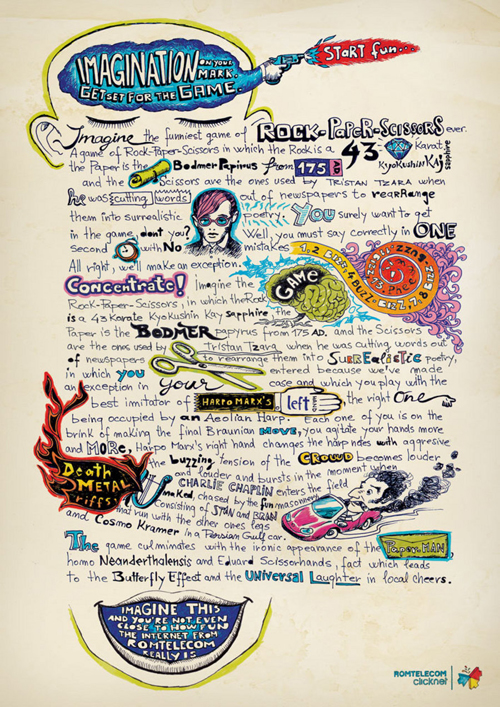 IMAGINATION ON YOUR MARK.
GET SET FOR THE GAME.
START fun...
Imagine the funniest game of ROCK-PAPER-SCISSORS ever.
A game of Rock-Paper-Scissors in which the Rock is a 43 Karat KyoKushin Kaj sapphire
the Paper is the Bodmer Papirus from 175 AD
and the Scissors are the ones used by TRISTAN TZARA when
he was cutting words out of newspapers to rearRange
them into surrealistic poetry. You surely want to get
in the game, dont you? Well, you must say correctly in ONE
second with No mistakes
1, 2, Bizz, 4, Buzz
Bizz, 7, 8
All right, we'll make an exception.
Concentrate! Imagine the GAME
Rock-Paper-Scissors, in which the Rock
is a 43 Karate Kyokushin Kay sapphire, the
Paper is the BODMER papyrus from 175 AD, and the Scissors
are the ones used by Tristan Tzara when he was cutting words out
of newspapers to rearrange them into SURREalistic poetry,
in which you entered because we've made
an exception in your case and which you play with the
best imitator of HARPO MARX'S left the right One
being occupied by an Aeolian Harp. Each one of you is on the
brink of making the final Braunian MOVE, you agitate your hands move
and MORE, Harpo Marx's right hand changes the harp notes with aggresive
Death METAL riffs!
the buzzing tension of the CROWD becomes louder
and louder and bursts in the moment when
CHARLIE CHAPLIN enters the field
naked, chased by the fun masonnery
consisting of STAN and BRAN
and run with the other ones legs
and Cosmo Kramer in a Persian Gulf car.
The game culminates with the ironic appearance of the Paper MAN,
homo Neanderthalensis and Eduard Scissorhands, fact which leads
to the Butterfly Effect and the UNIVERSAL Laughter in local cheers.
IMAGINE THIS
AND YOU'RE NOT EVEN
CLOSE TO HOW FUN
THE INTERNET FROM
ROMTELECOM
REALLY IS
ROMTELECOM
clicknet